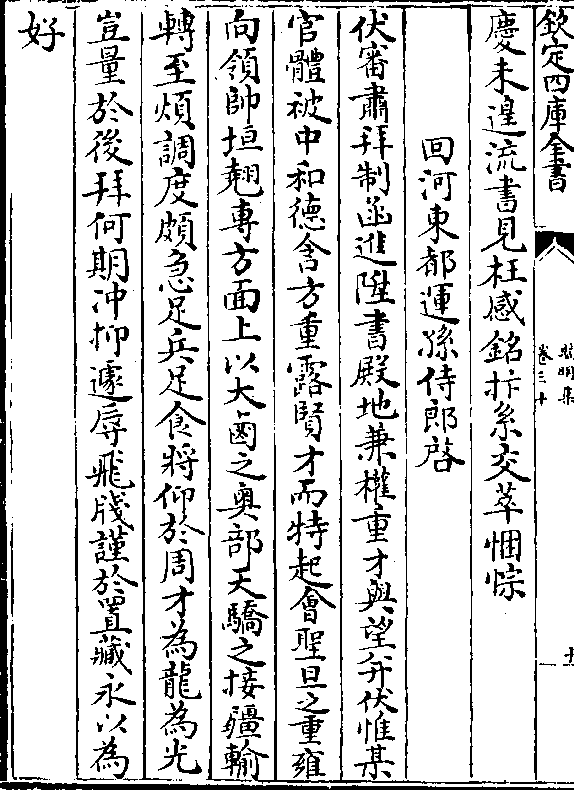 欽定四庫全書
卷三十
慶未遑流書見枉感銘抃系交萃悃悰
回河東都運孫侍郎啓
伏審肅拜制函進陞書殿地兼權重才與望并伏惟某
官體被中和德含方重露賢才而特起會聖旦之重雍
向領帥垣翹専方面上以大鹵之奥部天驕之接疆輸
轉至煩調度頗急足兵足食將仰於周才為龍為光
豈量於後拜何期冲抑遽辱飛牋謹於置藏永以為
好